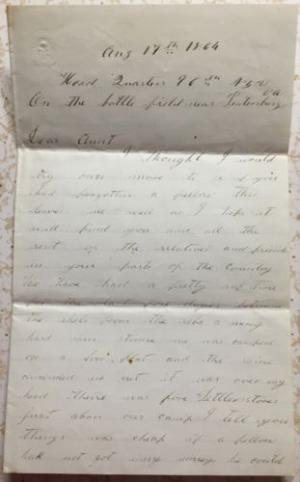 Aug 17th 1864
Head Quarters 96th N.Y.
On the battle field near Petersburg Va
Dear Aunt
I thought I would
try once more to see if you
had forgotten a fellow this
leaves me well as I hope it
will find you and all the
rest of the relatives and friends
in your parts of the Country
We have had a pretty
the last
the rebs
hard rain storm we was camped
on a low flat and the
us out it was over my
head there was five Settlers stores
just above our camp I tell you
things was cheap if a fellow
had not got any money he could